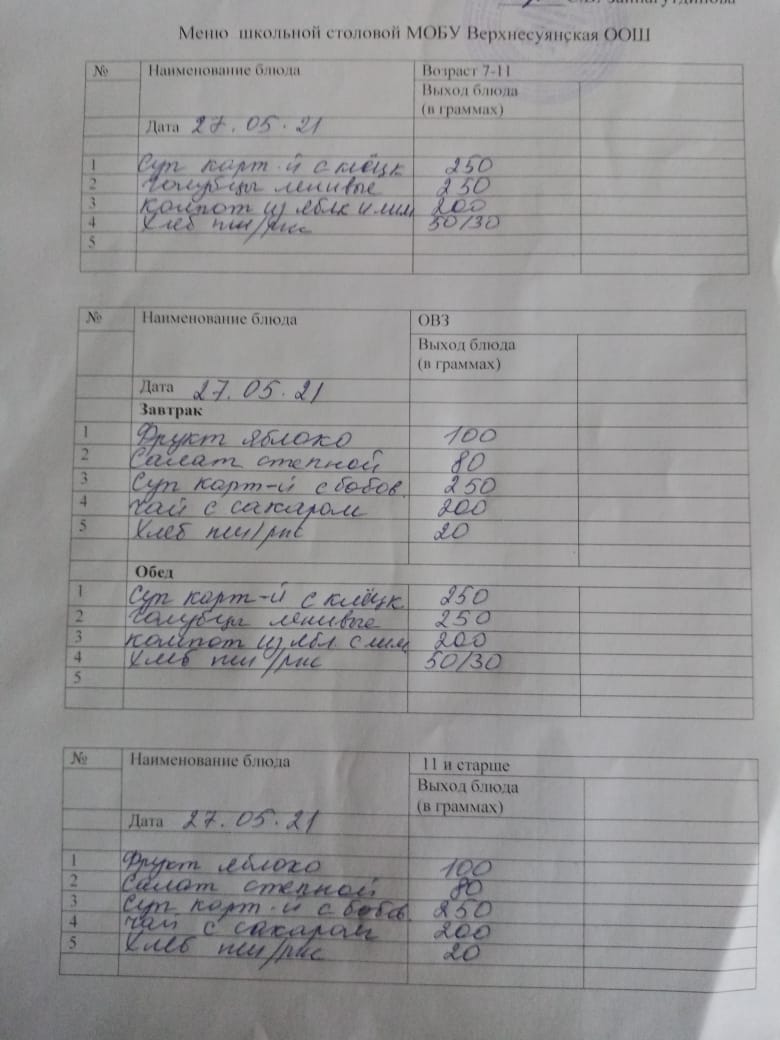 Меню школьной столовой МОБУ Верхнесуянская ООШ
№ Наименование блюда Возраст 7-11
Выход блюда
(в граммах)
Дата 27.05.21
1 Суп карт-й с клёцк 250
2 Голубцы ленивые 250
3 компот из яблк и лим 200
4 Хлеб пш/рж 50/30
5
№ Наименование блюда ОВЗ
Выход блюда
(в граммах)
Дата 27.05.21
Завтрак
1 Фрукт яблоко 100
2 Салат степной 80
3 Суп карт-й с бобов. 250
4 Чай с сахаром 200
5 Хлеб пш/рж 20
Обед
1 Суп карт-й с клёцк 250
2 Голубцы ленивые 250
3 компот из ябл с лим 200
4 Хлеб пш/рж 50/30
5
№ Наименование блюда 11 и старше
Выход блюда
(в граммах)
Дата 27.05.21
1 Фрукт яблоко 100
2 Салат степной 80
3 Суп карт-й с бобов 250
4 Чай с сахаром 200
5 Хлеб пш/рж 20